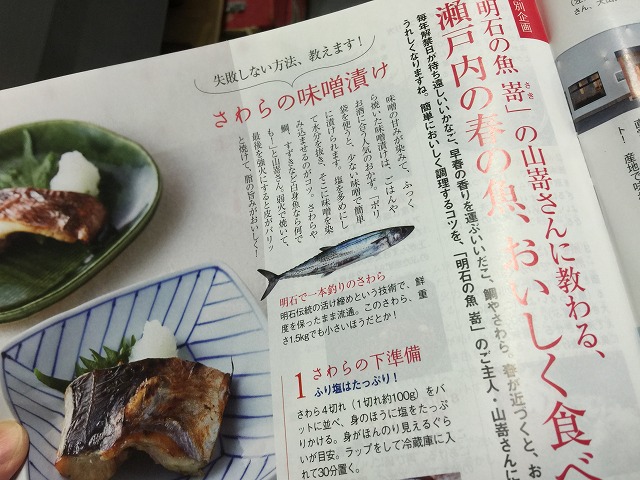 別企画
「明石の魚 嵜」の山嵜さんに教わる、
さき
瀬戸内の春の魚、おいしく食べ
毎年解禁日が待ち遠しいいかなご、早春の香りを運ぶいいだこ、鯛やさわら。春が近づくと、お
うれしくなりますね。簡単においしく調理するコツを、「明石の魚 嵜」のご主人・山嵜さんに
失敗しない方法、教えます！
さわらの味噌漬け
味噌の甘みが染みて、ふっく
ら焼いた味噌漬けは、ごはんや
お酒に合う人気のおかず。「ポリ
袋を使うと、少ない味噌で簡単
に漬けられます。塩を多めにし
て水分を抜き、そこに味噌を染
み込ませるのがコツ。さわらや
鯛、すずきなど白身魚なら何で
も！」と山嵜さん。弱火で焼いて、
最後を強火にすると皮がパリッ
と焼けて、脂の旨みがおいしく！
明石で一本釣りのさわら
明石伝統の活け締めという技術で、鮮
度を保ったまま流通。このさわら、重
さ1.5kgでも小さいほうだとか！
1 さわらの下準備
ふり塩はたっぷり！
さわら4切れ（1切れ約100g）をバ
ットに並べ、身のほうに塩をたっぷ
りかける。身がほんのり見えるぐら
いが目安。ラップをして冷蔵庫に入
れて30分置く。